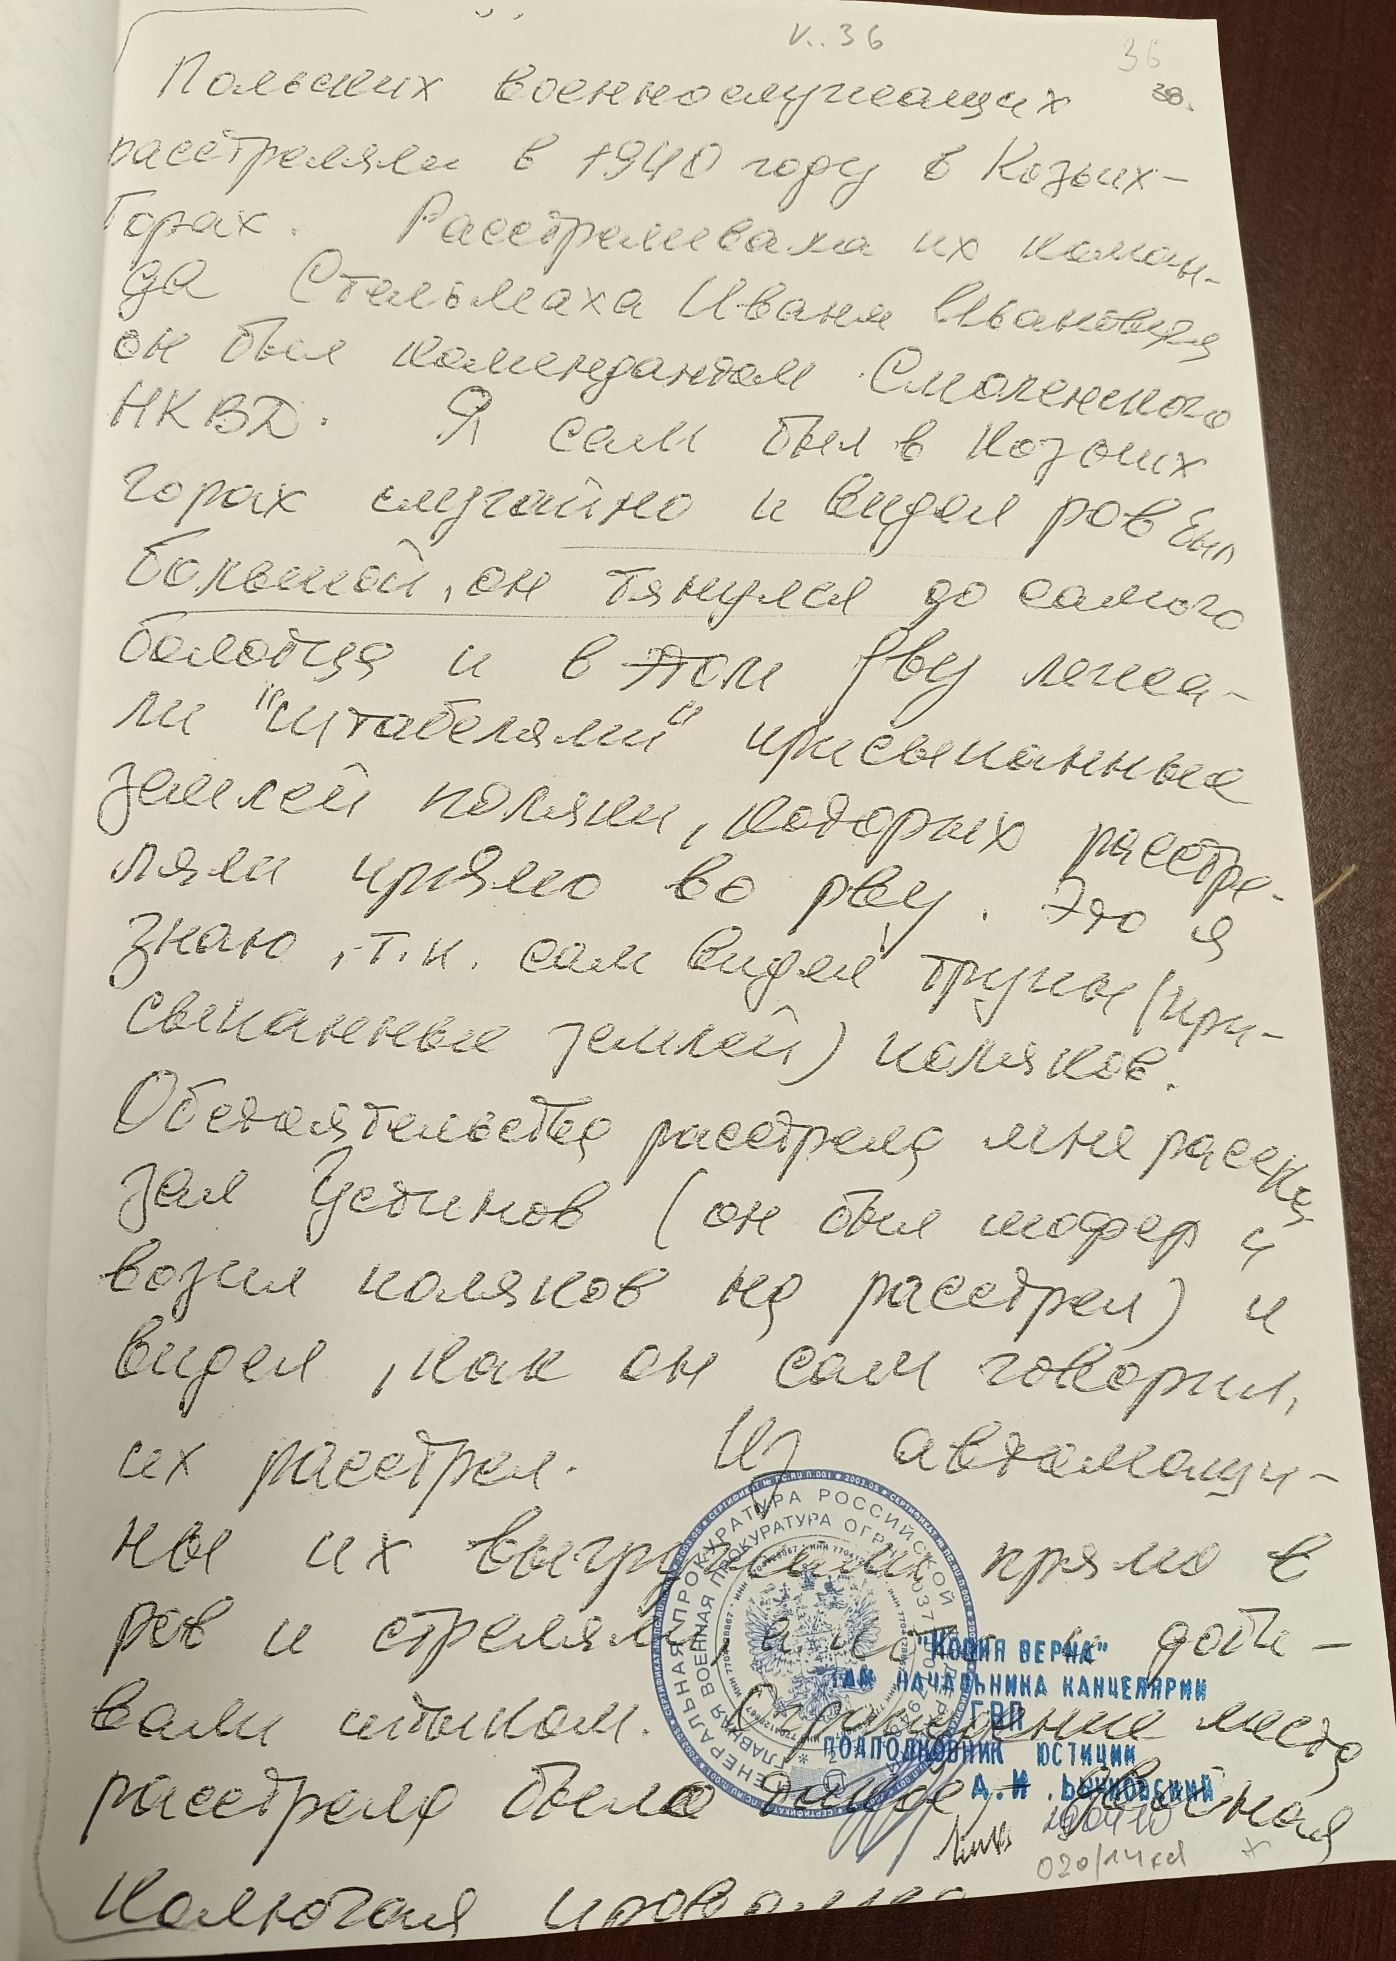 36
38.
Польских военнослужащих
расстреляли в 1940 году в Козьих-
Горах. Расстреливала их коман-
да Стельмаха Ивана Ивановича
он был комендантом Смоленского
НКВД. Я сам был в Козьих
горах случайно и видел ров был
большой, он тянулся до самого
болотца и в этом рву лежа-
ли "штабелями" присыпанные
землей поляки, которых расстре-
ляли прямо во рву. Это я
знаю, т.к. сам видел трупы (при-
сыпанные землей) поляков.
Обстоятельства расстрела мне расска
зал Устинов (он был шофер и
возил поляков на расстрел) и
видел, как он сам говорил,
их расстрел. Из автомаши-
ны их выгружали прямо в
ров и стреляли, а доби-
вали штыком. Ограждение места
расстрела было двойная
колючая проволока
ГЕНЕРАЛЬНАЯ ПРОКУРАТУРА РОССИЙСКОЙ
ГЛАВНАЯ ВОЕННАЯ ПРОКУРАТУРА
"КОПИЯ ВЕРНА"
НАЧАЛЬНИКА КАНЦЕЛЯРИИ
ГВП
ПОДПОЛКОВНИК ЮСТИЦИИ
А.И.